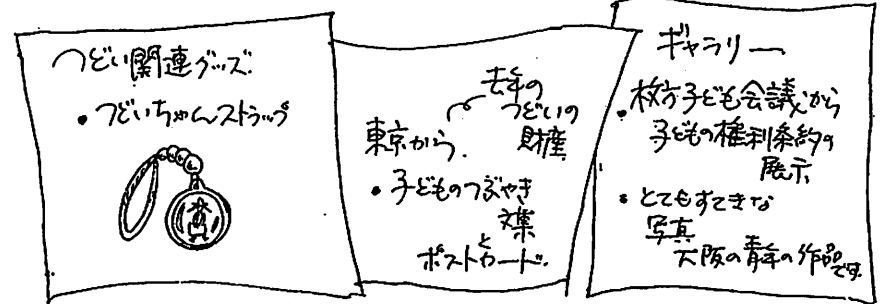 つどい関連グッズ
・つどいちゃんストラップ
去年の
つどいの
財産
東京から
・子どものつぶやき
文集
と
ポストカード
ギャラリー
・枚方子ども会議から
子どもの権利条約の
展示
・とてもすてきな
写真
大阪の青年の作品です。